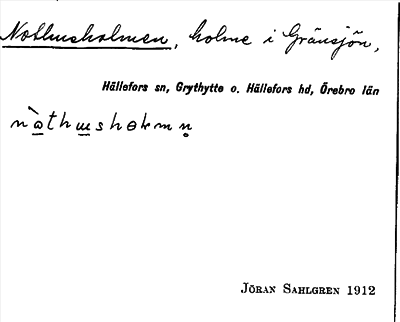 Notthusholmen, holme i Gränsjön,
Hällefors sn, Grythytte o. Hällefors hd, Örebro län
JÖRAN SAHLGREN 1912